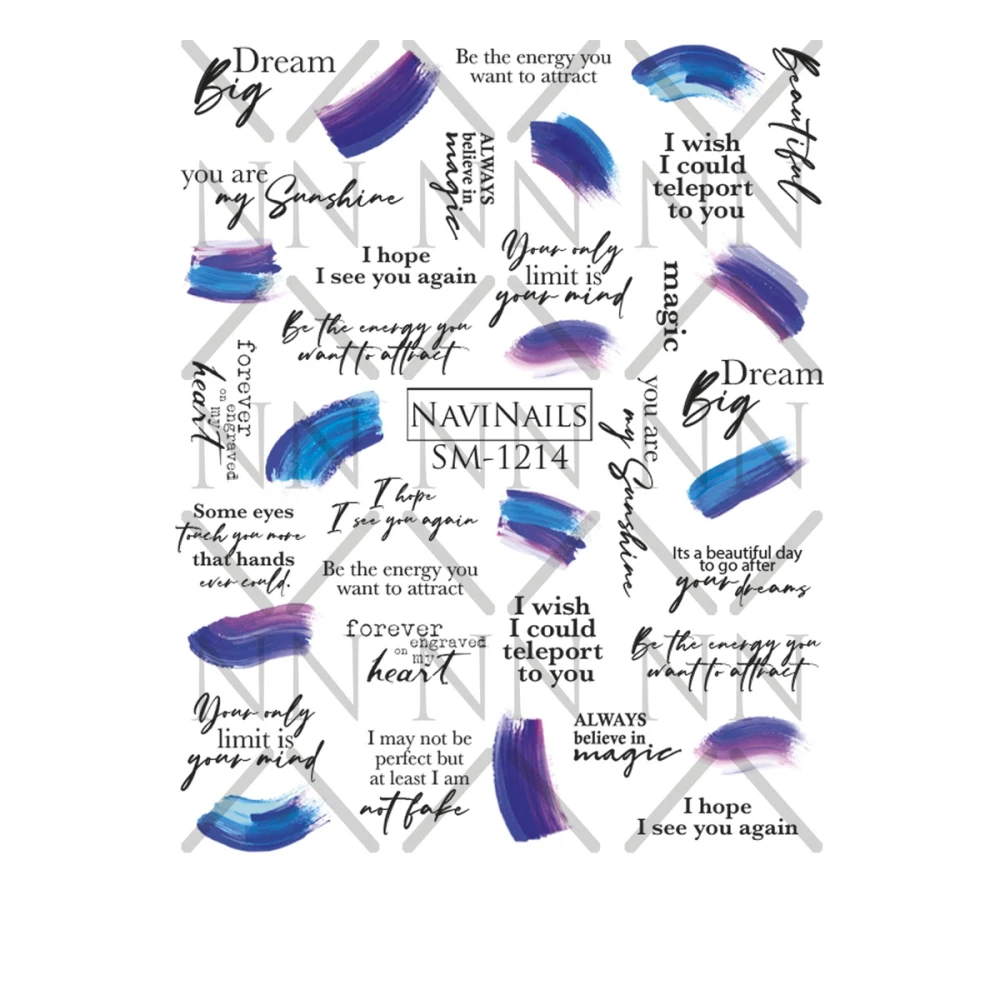 Dream
Big
Be the energy you
want to attract
Beautiful
ALWAYS
believe in
magic
I wish
I could
teleport
to you
you are
my Sunshine
I hope
I see you again
Your only
limit is
your mind
magic
Be the energy you
want to attract
forever
engraved
on my
heart
Dream
Big
you are
my Sunshine
NAVINAILS
SM-1214
I hope
I see you again
Some eyes
touch you more
that hands
ever could.
Its a beautiful day
to go after
your dreams
Be the energy you
want to attract
I wish
I could
teleport
to you
forever
engraved
on my
heart
Be the energy you
want to attract
Your only
limit is
your mind
ALWAYS
believe in
magic
I may not be
perfect but
at least I am
not fake
I hope
I see you again
NN NN NN
NN NN NN
NN NN NN
NN NN NN